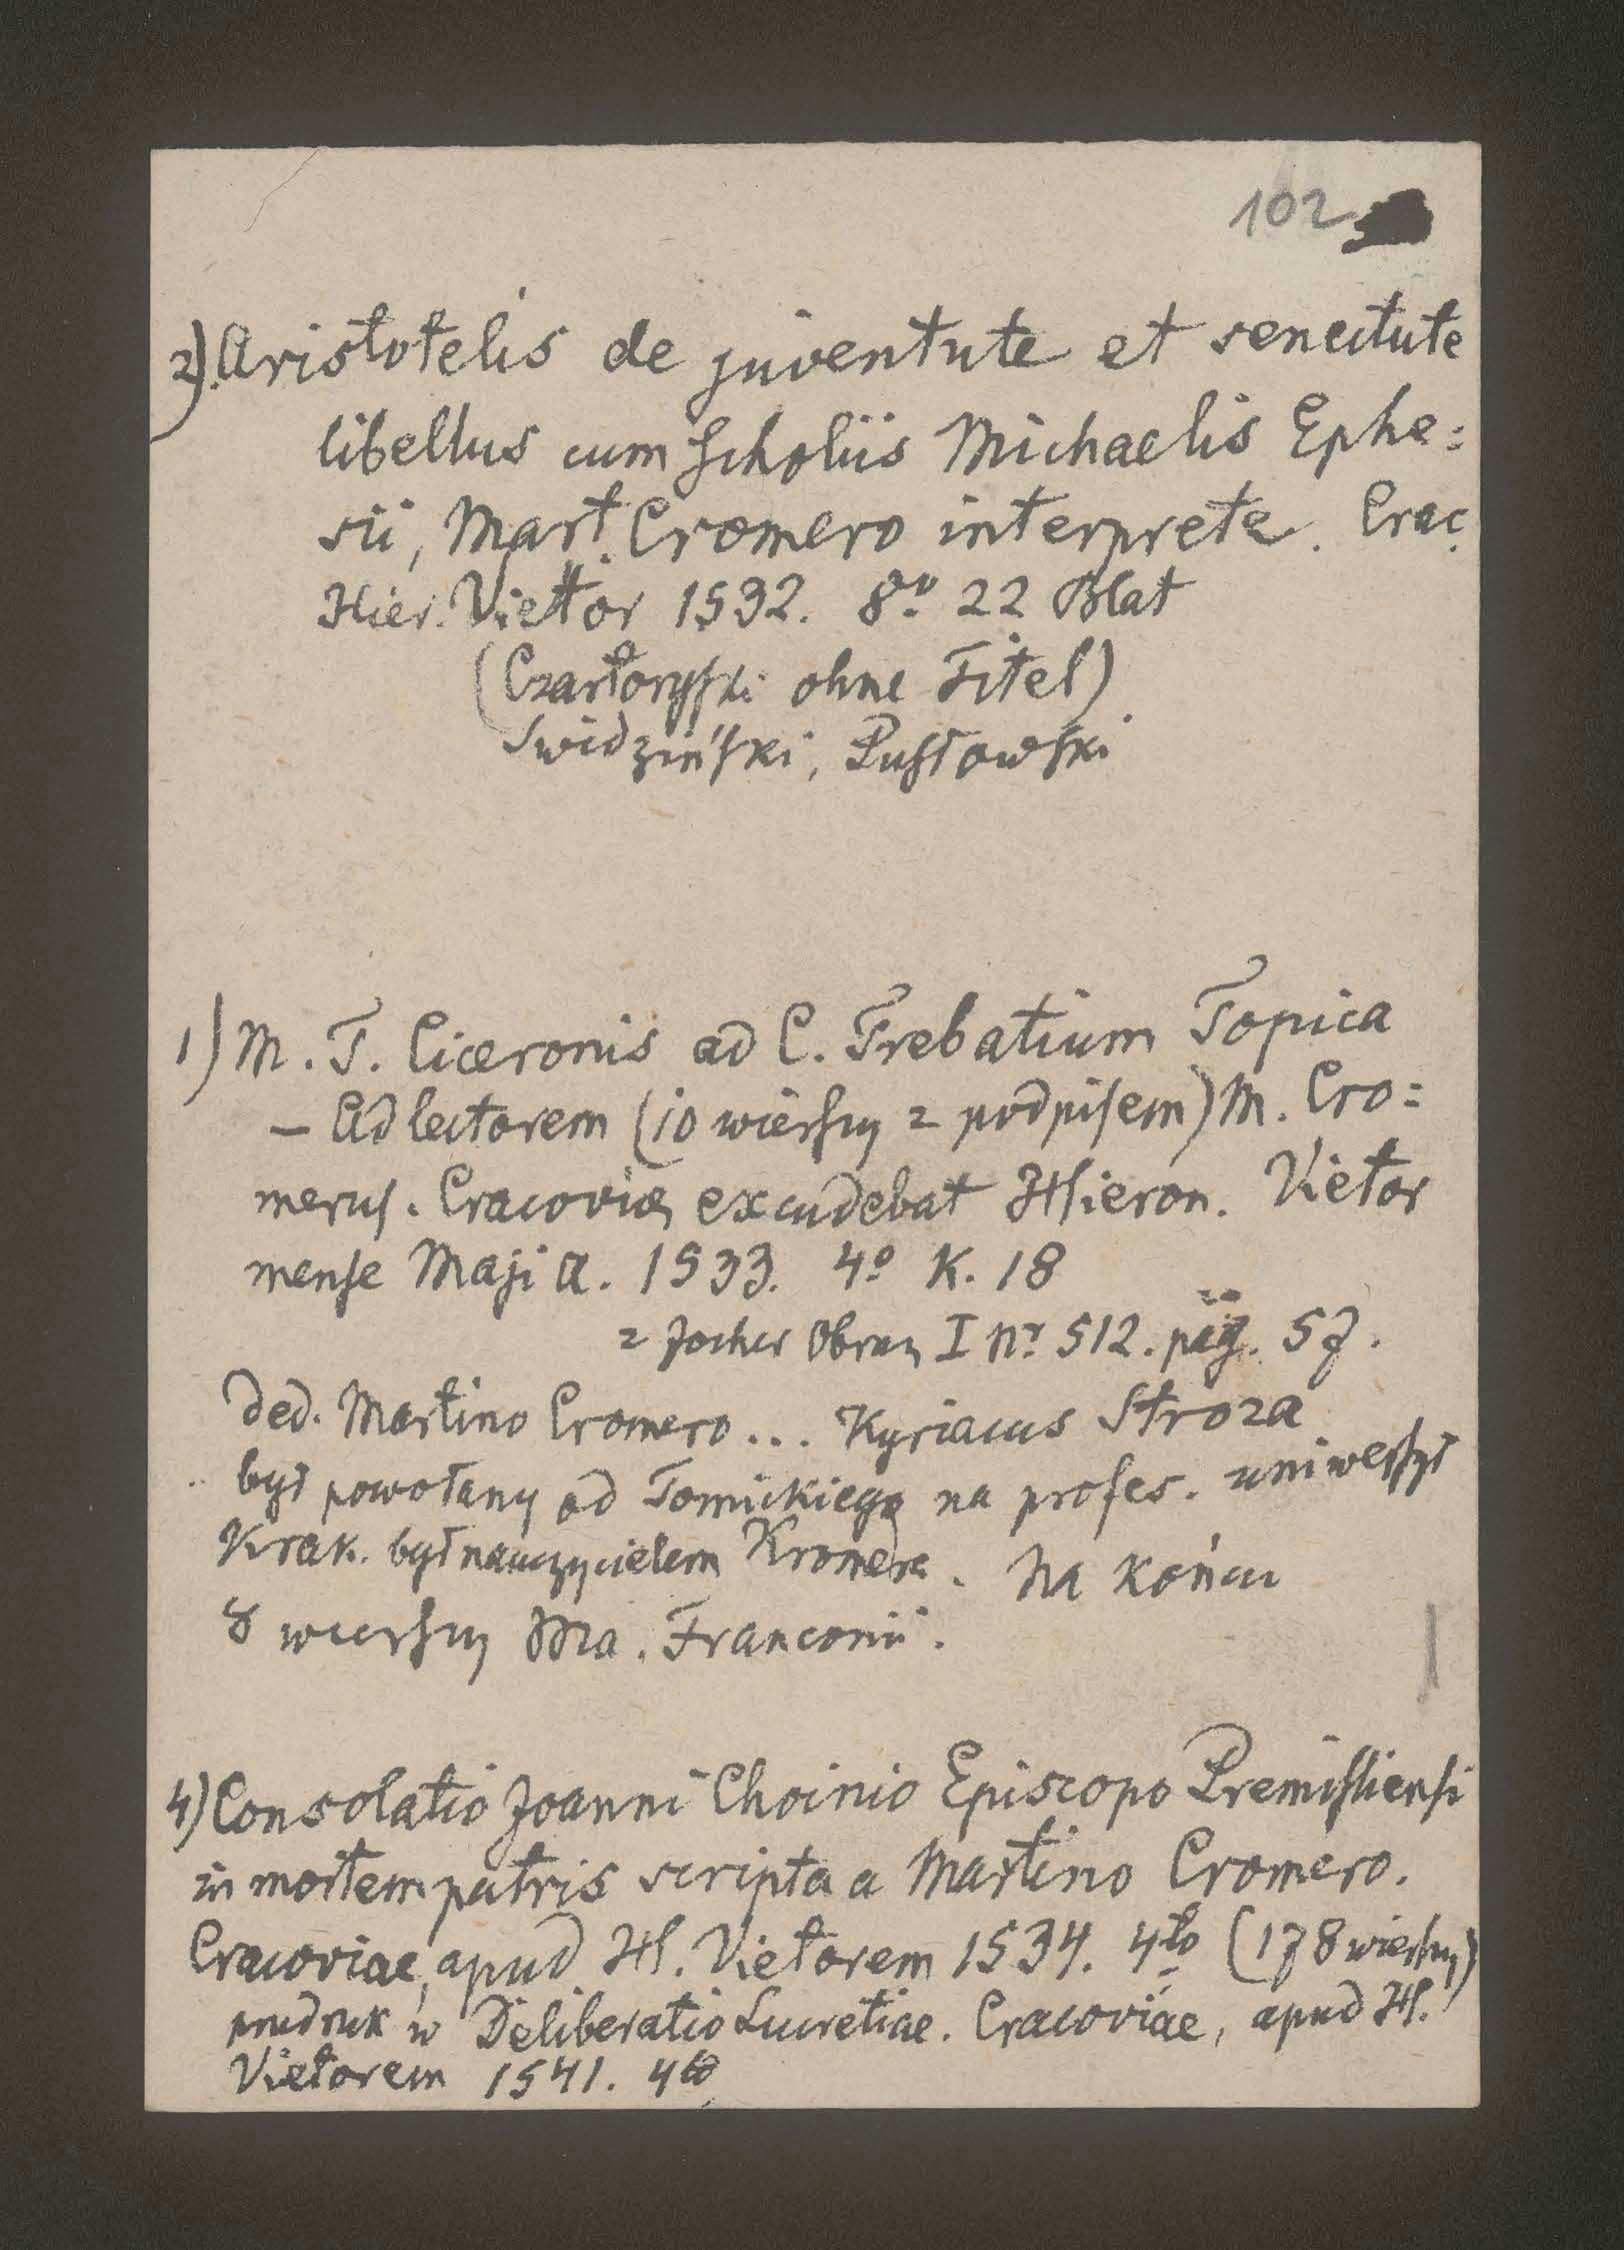 102
2). Aristotelis de juventute et senectute
libellus cum scholiis Michaelis Ephe:
sii, Mart. Cromero interprete. Crac.
Hier. Vietor 1532. 8vo 22 Blat
(Czartoryski ohne Titel)
Swidziński, Pusłowski
1) M. T. Ciceronis ad C. Trebatium Topica
– Ad lectorem (10 wierszy z podpisem) M. Cro:
merus. Cracoviae excudebat Hieron. Vietor
mense Maji a. 1533. 4o K. 18
z Jocher Obraz I nr. 512. pag. 57.
Ded. Martino Cromero... Kyriacus Stroza
był powołany od Tomickiego na profes. uniwersyt
Krak. był nauczycielem Kromera. Na końcu
8 wierszy Ma. Franconii.
4) Consolatio Joanni Choinio Episcopo Premisliensi
in mortem patris scripta a Martino Cromero.
Cracoviae, apud H. Vietorem 1534. 4to (178 wierszy)
przedruk w Deliberatio Lucretiae. Cracoviae, apud H.
Vietorem 1541. 4to